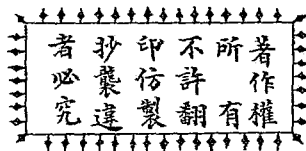 著作權
所有
不許翻
印仿製
抄襲違
者必究